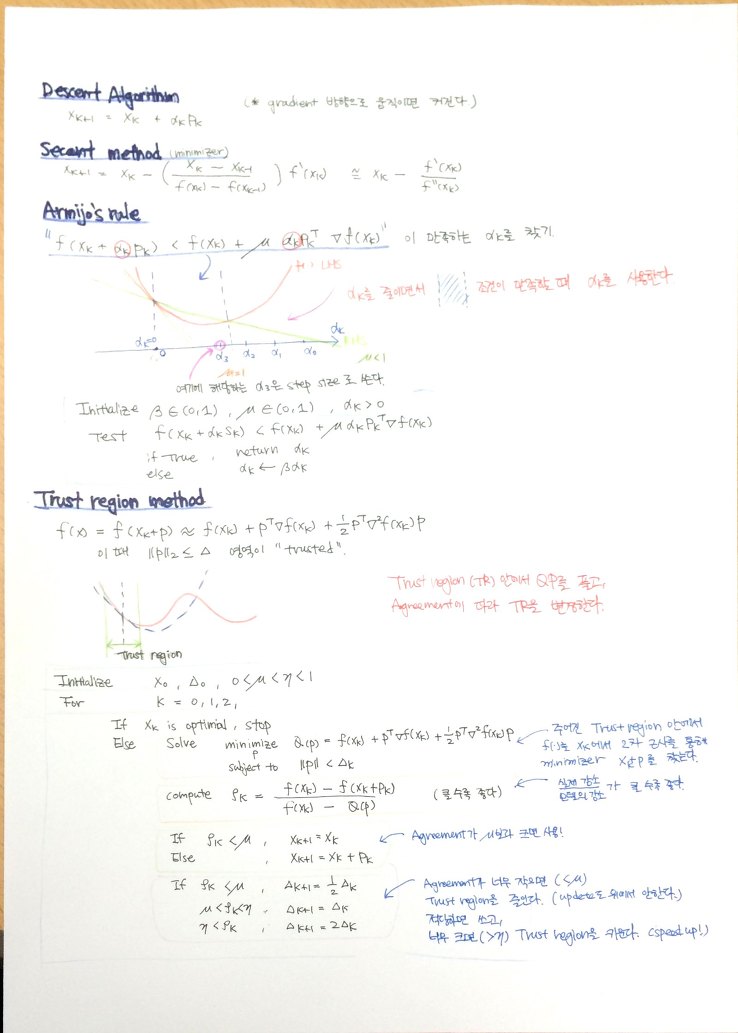 Descent Algorithm
(* gradient 방향으로 움직이면 커진다)
x_{k+1} = x_k + α_k p_k
Secant method (minimizer)
x_{k+1} = x_k - ( (x_k - x_{k-1}) / (f(x_k) - f(x_{k-1})) ) f'(x_k) ≅ x_k - f'(x_k) / f''(x_k)
Armijo's rule
"f(x_k + α_k p_k) < f(x_k) + μ α_k p_k^T ∇f(x_k)" 이 만족하는 α_k를 찾기
α_k를 줄이면서 조건이 만족할 때 α_k를 사용한다
α_k=0 0 α_3 α_2 α_1 α_0 α_k
μ=1 μ<1
여기에 해당하는 α_3은 step size로 쓴다.
Initialize β∈(0,1), μ∈(0,1), α_k>0
Test f(x_k+α_k s_k) < f(x_k) + μ α_k p_k^T ∇f(x_k)
if True, return α_k
else α_k ← βα_k
Trust region method
f(x) = f(x_k+p) ≈ f(x_k) + p^T∇f(x_k) + 1/2 p^T∇²f(x_k)p
이 때 ||p||_2 ≤ Δ 영역이 "trusted".
Trust region (TR) 안에서 QP를 풀고,
Agreement에 따라 TR을 변경한다.
Trust region
Initialize x_0, Δ_0, 0<μ<η<1
For k = 0,1,2,
If x_k is optimal, stop
Else Solve minimize Q(p) = f(x_k) + p^T∇f(x_k) + 1/2 p^T∇²f(x_k)p
p
subject to ||p|| < Δ_k
주어진 Trust region 안에서
f(·)를 x_k에서 2차 근사를 통해
minimizer x_k+p를 찾는다.
compute ρ_k = (f(x_k) - f(x_k+p_k)) / (f(x_k) - Q(p)) (클수록 좋다)
실제 감소 / 모델의 감소 가 클 수록 좋다.
If ρ_k<μ, x_{k+1} = x_k
Else , x_{k+1} = x_k + p_k
Agreement가 μ보다 크면 사용!
If ρ_k<μ, Δ_{k+1} = 1/2 Δ_k
μ<ρ_k<η, Δ_{k+1} = Δ_k
η<ρ_k, Δ_{k+1} = 2Δ_k
Agreement가 너무 작으면 (≤μ)
Trust region을 줄인다. (update도 위에서 안한다.)
적당하면 쓰고,
너무 크면 (>η) Trust region을 키운다. (speed up!)